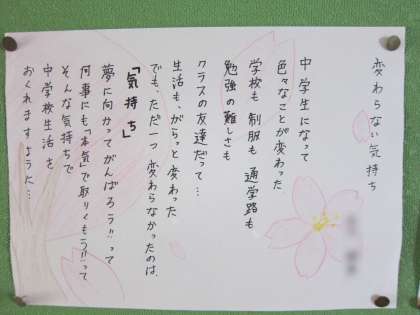 変わらない気持ち
中学生になって
色々なことが変わった
学校も 制服も 通学路も
勉強の難しさも
クラスの友達だって…
生活も、がらっと変わった
でも、ただ一つ変わらなかったのは、
「気持ち」
夢に向かってがんばろう!!って
何事にも「本気」で取りくもう!!って
そんな気持ちで
中学校生活を
おくれますように…